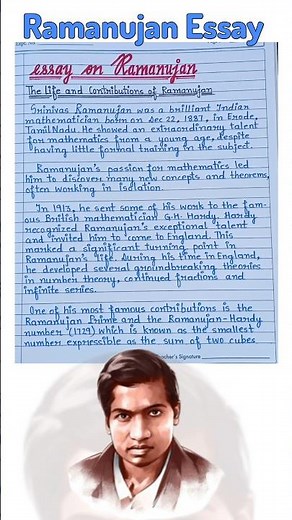 Ramanujan Essay
essay on Ramanujan
The Life and Contributions of Ramanujan
Srinivas Ramanujan was a brilliant Indian
mathematician born on Dec 22, 1887, in Erode,
Tamil Nadu. He showed an extraordinary talent
for mathematics from a young age, despite
having little formal training in the subject.
Ramanujan's passion for mathematics led
him to discover many new concepts and theorems,
often working in isolation.
In 1913, he sent some of his work to the fam-
ous British mathematician G.H. Hardy. Hardy
recognized Ramanujan's exceptional talent
and invited him to come to England. This
marked a significant turning point in
Ramanujan's life. During his time in England,
he developed several groundbreaking theories
in number theory, continued fractions and
infinite series.
One of his most famous contributions is the
Ramanujan Prime and the Ramanujan-Hardy
number (1729) which is known as the smallest
number expressible as the sum of two cubes
Teacher's Signature